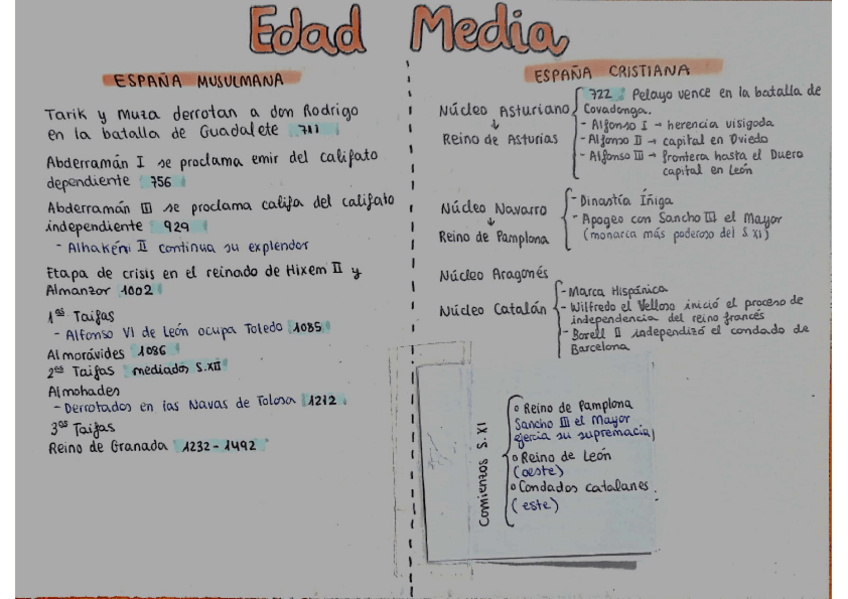 Edad Media
ESPAÑA MUSULMANA
Tarik y Muza derrotan a don Rodrigo
en la batalla de Guadalete 711
Abderramán I se proclama emir del califato
dependiente 756
Abderramán III se proclama califa del califato
independiente 929
- Alhakém II continua su explendor
Etapa de crisis en el reinado de Hixem II y
Almanzor 1002
1as Taifas
- Alfonso VI de León ocupa Toledo 1085
Almorávides 1086
2as Taifas mediados S.XII
Almohades
- Derrotados en las Navas de Tolosa 1212
3as Taifas
Reino de Granada 1232-1492
ESPAÑA CRISTIANA
Núcleo Asturiano
↓
Reino de Asturias
722: Pelayo vence en la batalla de
Covadonga.
- Alfonso I → herencia visigoda
- Alfonso II → capital en Oviedo
- Alfonso III → frontera hasta el Duero
capital en León
Núcleo Navarro
↓
Reino de Pamplona
- Dinastía Íñiga
- Apogeo con Sancho III el Mayor
(monarca más poderoso del S.XI)
Núcleo Aragonés
Núcleo Catalán
- Marca Hispánica
- Wilfredo el Velloso inició el proceso de
independencia del reino francés
- Borell II independizó el condado de
Barcelona
Comienzos S. XI
o Reino de Pamplona
Sancho III el Mayor
ejercía su supremacía
o Reino de León
(oeste)
o Condados catalanes.
(este)